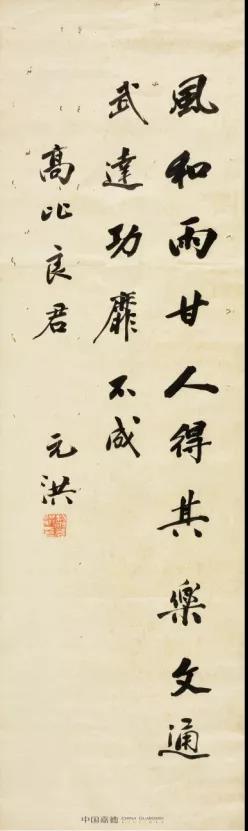 風和雨甘人得其樂文通
武達功靡不成
高比良君
元洪
中国嘉德 CHINA GUARDIAN